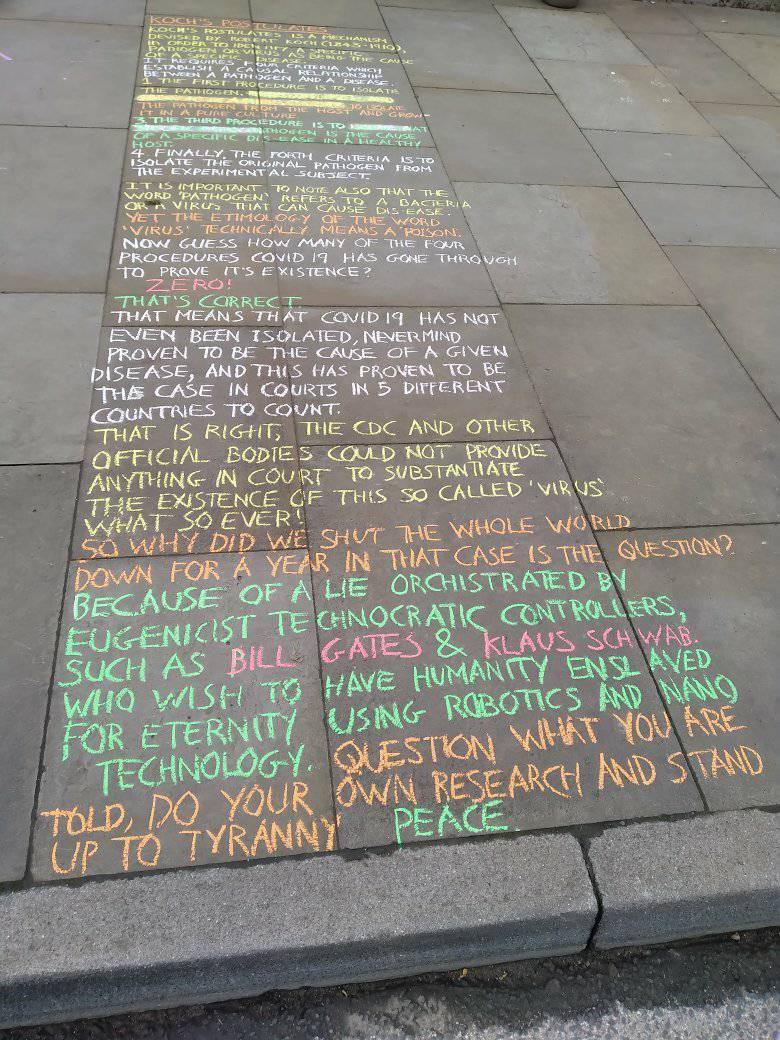 KOCH'S POSTULATES
KOCH'S POSTULATES IS A MECHANISM
DEVISED BY ROBERT KOCH (1843-1910),
IN ORDER TO IDENTIFY A SPECIFIC
PATHOGEN OR VIRUS AS BEING THE CAUSE
OF A SPECIFIC DISEASE.
IT REQUIRES FOUR CRITERIA WHICH
ESTABLISH A CAUSAL RELATIONSHIP
BETWEEN A PATHOGEN AND A DISEASE.
1 THE FIRST PROCEDURE IS TO ISOLATE
THE PATHOGEN.
THE PATHOGEN FROM THE HOST AND GROW
IT IN A PURE CULTURE
3 THE THIRD PROCEDURE IS TO THAT
PATHOGEN IS THE CAUSE
OF A SPECIFIC DIS-EASE IN A HEALTHY
HOST.
4 FINALLY, THE FORTH CRITERIA IS TO
ISOLATE THE ORIGINAL PATHOGEN FROM
THE EXPERIMENTAL SUBJECT.
IT IS IMPORTANT TO NOTE ALSO THAT THE
WORD 'PATHOGEN' REFERS TO A BACTERIA
OR VIRUS THAT CAN CAUSE DIS-EASE.
YET THE ETIMOLOGY OF THE WORD
'VIRUS' TECHNICALLY MEANS A 'POISON.
NOW GUESS HOW MANY OF THE FOUR
PROCEDURES COVID 19 HAS GONE THROUGH
TO PROVE IT'S EXISTENCE?
ZERO!
THAT'S CORRECT.
THAT MEANS THAT COVID 19 HAS NOT
EVEN BEEN ISOLATED, NEVERMIND
PROVEN TO BE THE CAUSE OF A GIVEN
DISEASE, AND THIS HAS PROVEN TO BE
THE CASE IN COURTS IN 5 DIFFERENT
COUNTRIES TO COUNT.
THAT IS RIGHT, THE CDC AND OTHER
OFFICIAL BODIES COULD NOT PROVIDE
ANYTHING IN COURT TO SUBSTANTIATE
THE EXISTENCE OF THIS SO CALLED 'VIRUS'
WHAT SO EVER!
SO WHY DID WE SHUT THE WHOLE WORLD
DOWN FOR A YEAR IN THAT CASE IS THE QUESTION?
BECAUSE OF A LIE ORCHISTRATED BY
EUGENICIST TECHNOCRATIC CONTROLLERS,
SUCH AS BILL GATES & KLAUS SCHWAB.
WHO WISH TO HAVE HUMANITY ENSLAVED
FOR ETERNITY USING ROBOTICS AND NANO
TECHNOLOGY. QUESTION WHAT YOU ARE
TOLD, DO YOUR OWN RESEARCH AND STAND
UP TO TYRANNY PEACE.